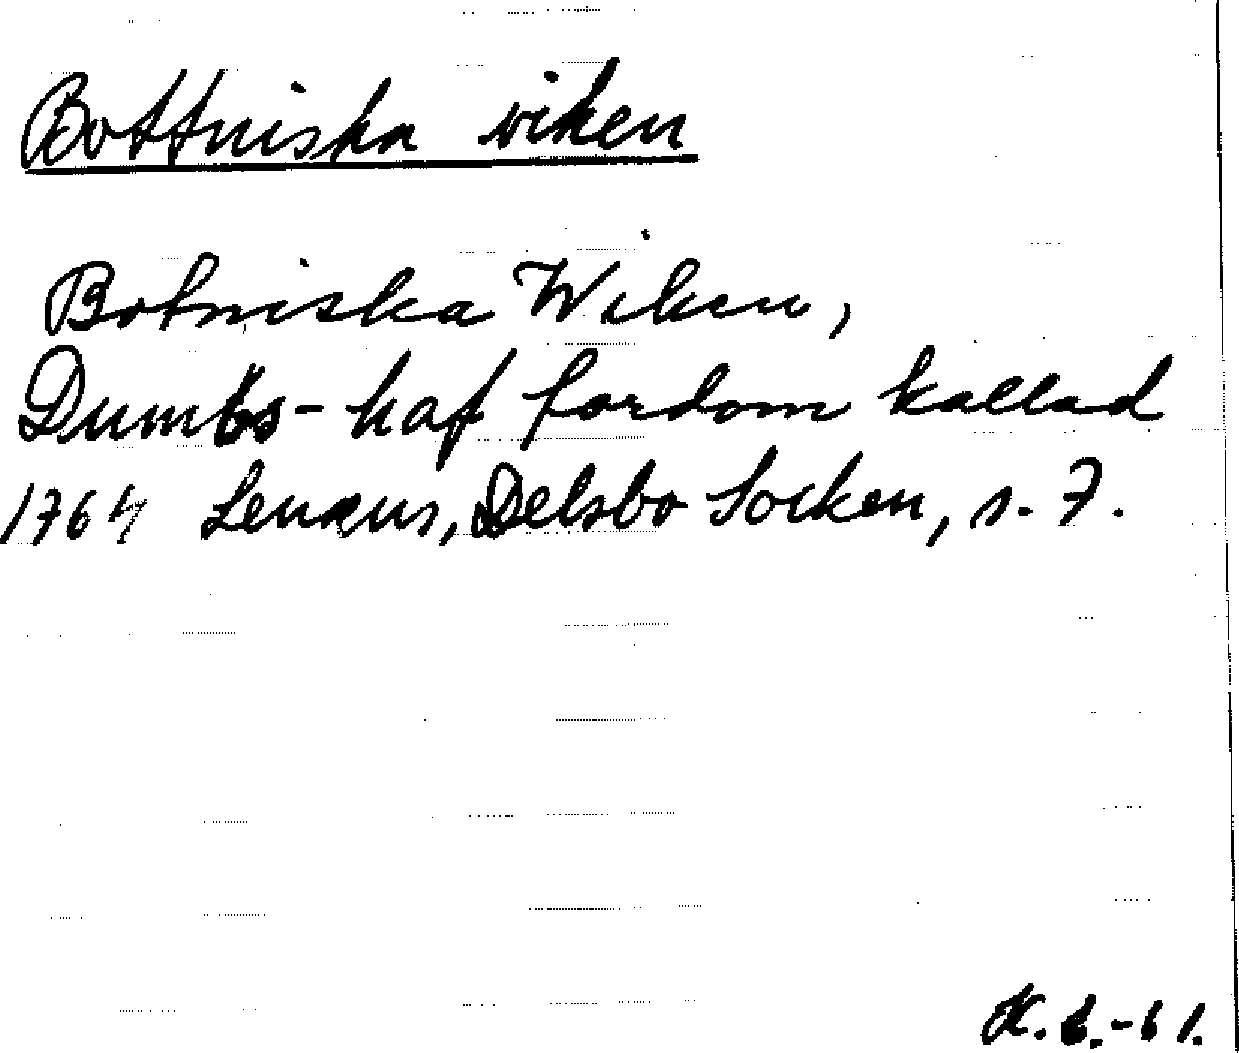 Bottniska viken
Botniska Wiken,
Dumbs-haf fordom kallad
1764 Lenæus, Delsbo Socken, s. 7.